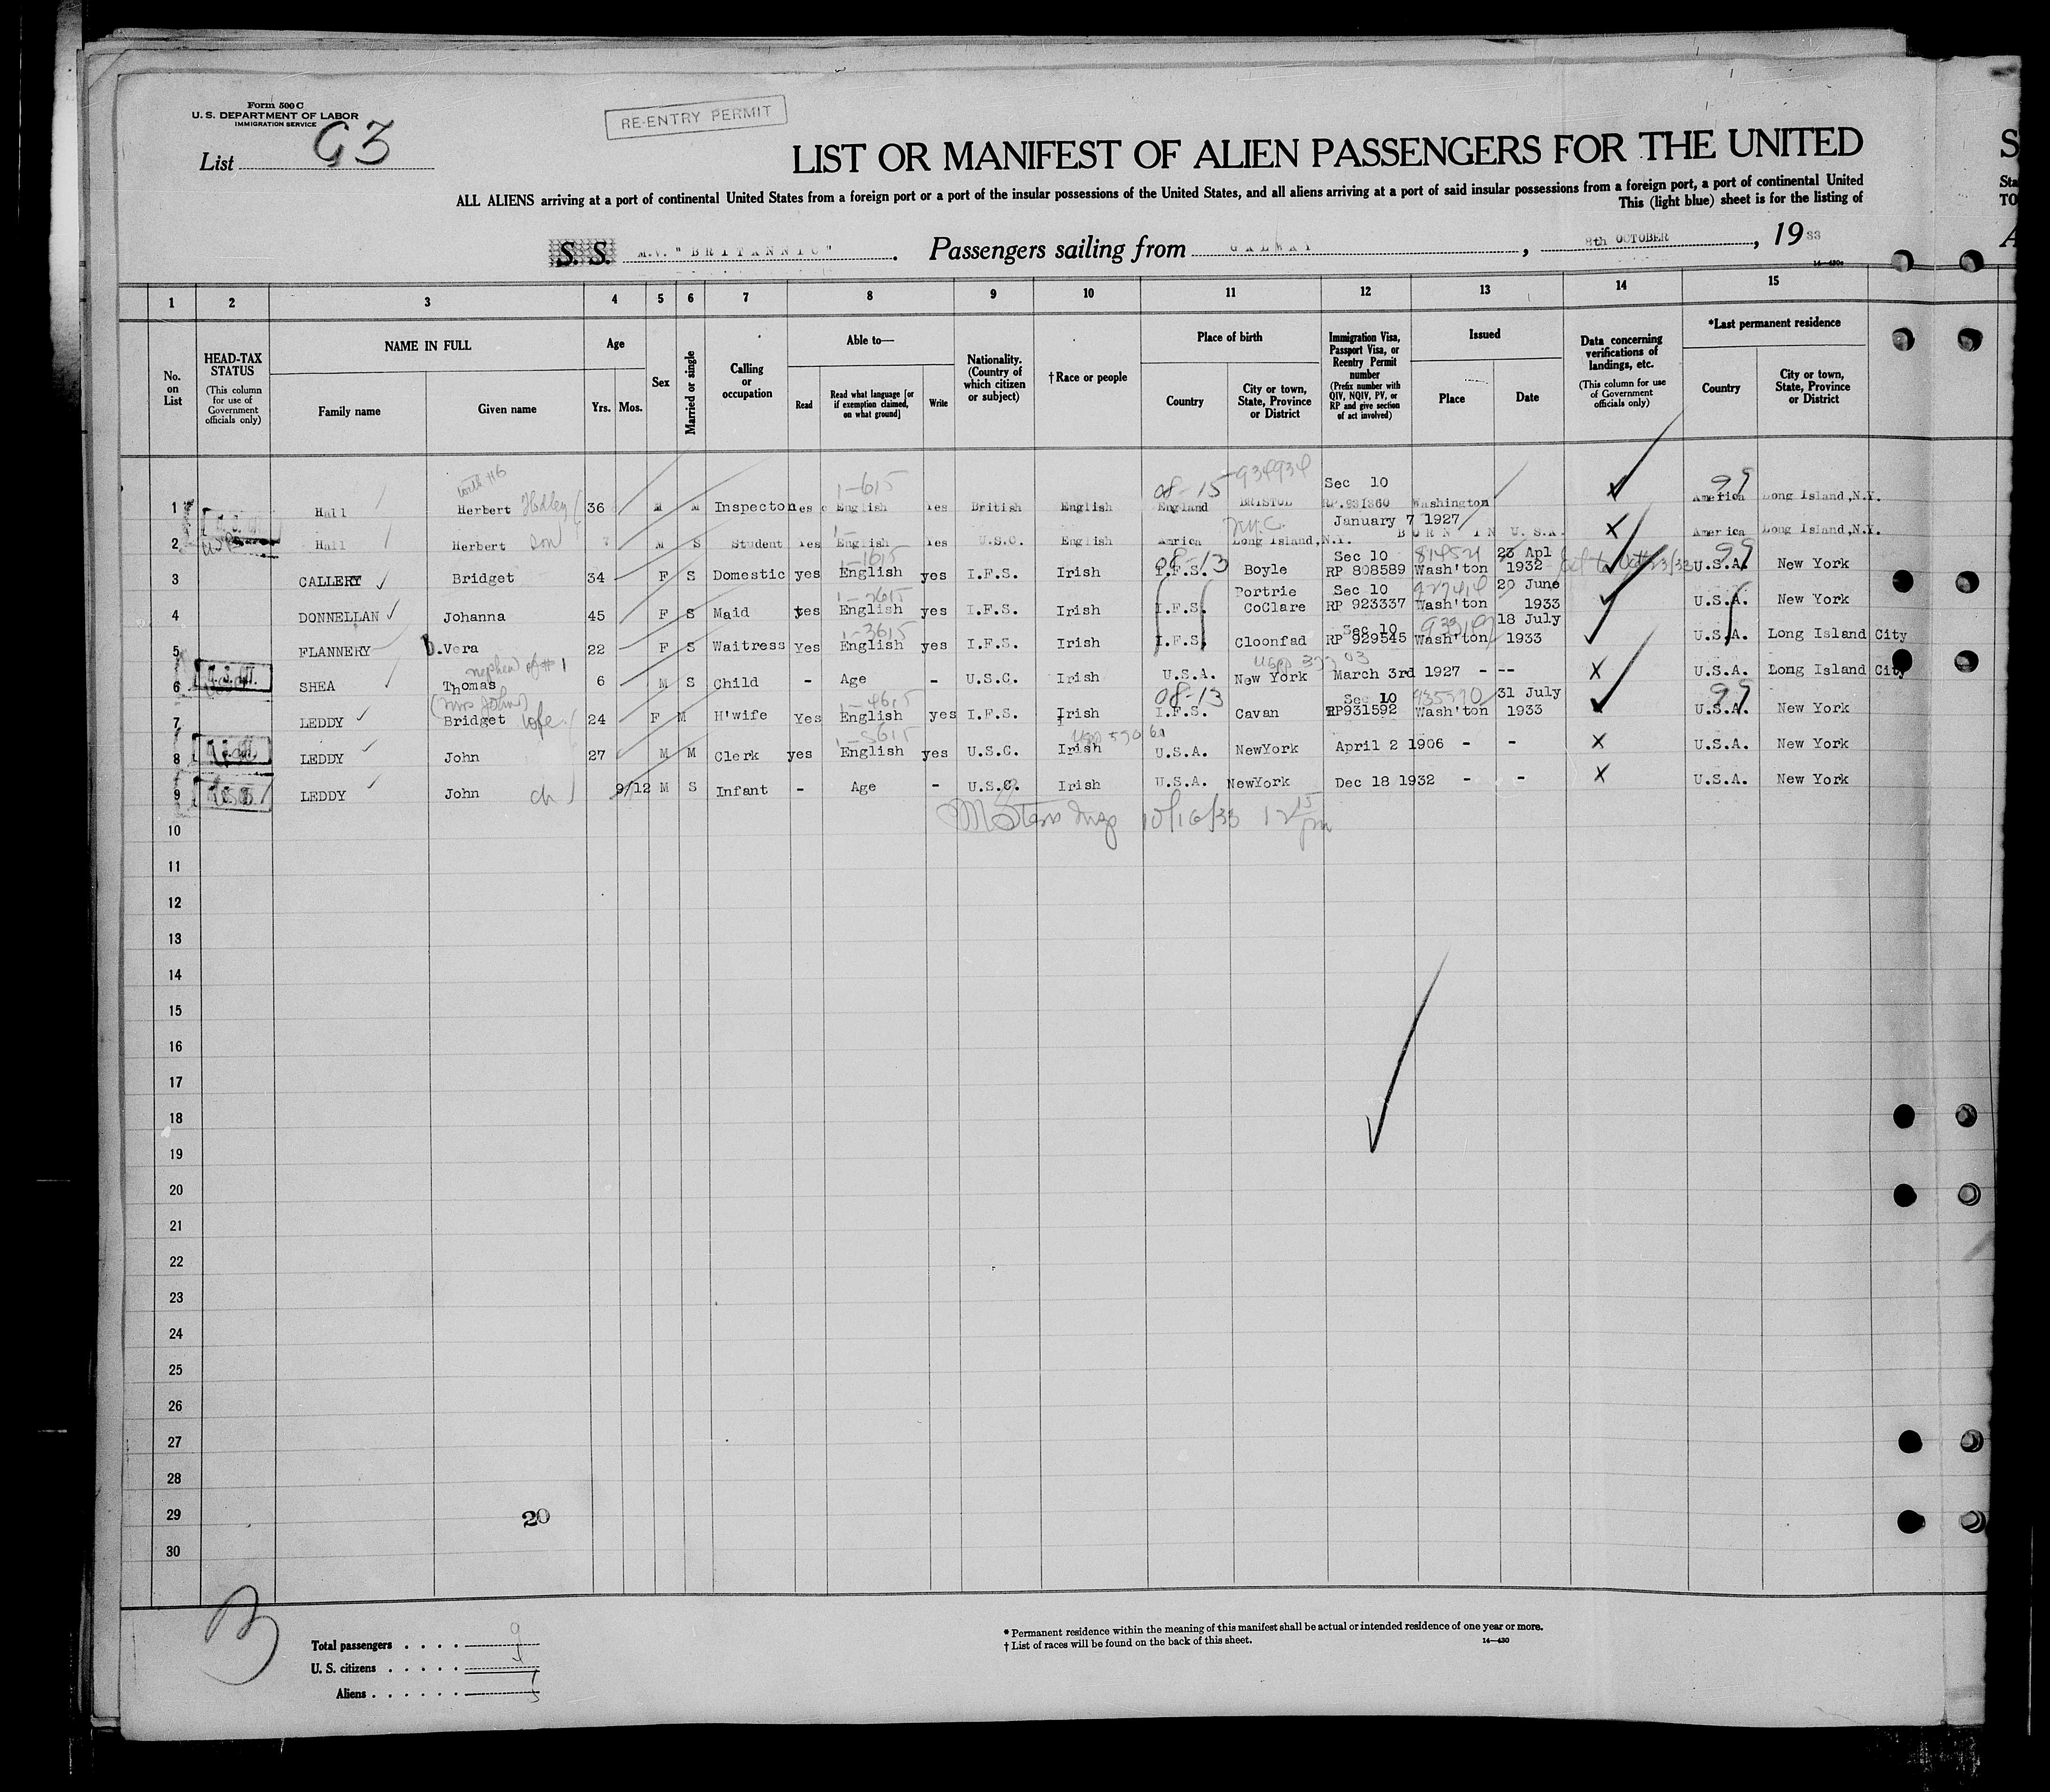 Form 500 C
U. S. DEPARTMENT OF LABOR
IMMIGRATION SERVICE
RE-ENTRY PERMIT
List G3
LIST OR MANIFEST OF ALIEN PASSENGERS FOR THE UNITED
S
ALL ALIENS arriving at a port of continental United States from a foreign port or a port of the insular possessions of the United States, and all aliens arriving at a port of said insular possessions from a foreign port, a port of continental United
This (light blue) sheet is for the listing of
S. S. M.V. "BRITANNIC". Passengers sailing from GALWAY, 8th OCTOBER, 1933
14—430
1 2 3 4 5 6 7 8 9 10 11 12 13 14 15
No. on List
HEAD-TAX STATUS (This column for use of Government officials only)
NAME IN FULL Family name Given name
Age Yrs. Mos.
Sex
Married or single
Calling or occupation
Able to— Read Read what language [or if exemption claimed, on what ground] Write
Nationality. (Country of which citizen or subject)
†Race or people
Place of birth Country City or town, State, Province or District
Immigration Visa, Passport Visa, or Reentry Permit number (Prefix number with QIV, NQIV, PV, or RP and give section of act involved)
Issued Place Date
Data concerning verifications of landings, etc. (This column for use of Government officials only)
*Last permanent residence Country City or town, State, Province or District
with #6 1-615 08-15 -934934 Sec 10 99
1 Hall Herbert Hadley 36 M M Inspector Yes English Yes British English England BRISTOL RP.931360 Washington America Long Island,N.Y.
January 7 1927 BORN IN U.S.A.
2 Hall Herbert son M S Student Yes English Yes U.S.C. English Amrica Long Island,N.Y. X America Long Island,N.Y.
1-1615 08-13 Sec 10 23 Apl 99
3 CALLERY Bridget 34 F S Domestic yes English yes I.F.S. Irish I.F.S. Boyle RP 808589 Wash'ton 1932 U.S.A. New York
1-2615 Portrie Sec 10 20 June
4 DONNELLAN Johanna 45 F S Maid yes English yes I.F.S. Irish I.F.S. CoClare RP 923337 Wash'ton 1933 U.S.A. New York
1-3615 Sec 10 18 July
5 FLANNERY B. Vera 22 F S Waitress Yes English yes I.F.S. Irish I.F.S. Cloonfad RP 929545 Wash'ton 1933 U.S.A. Long Island City
nephew of #1
6 SHEA Thomas 6 M S Child - Age - U.S.C. Irish U.S.A. New York March 3rd 1927 - -- X U.S.A. Long Island City
(Mrs John) 1-4615 08-13 Sec 10 935570 31 July 99
7 LEDDY Bridget wife 24 F M H'wife Yes English yes I.F.S. Irish I.F.S. Cavan RP931592 Wash'ton 1933 U.S.A. New York
1-5615
8 LEDDY John 27 M M Clerk yes English yes U.S.C. Irish U.S.A. NewYork April 2 1906 - - X U.S.A. New York
9 LEDDY John ch 9/12 M S Infant - Age - U.S.C. Irish U.S.A. NewYork Dec 18 1932 - - X U.S.A. New York
10/16/33 12 15 pm
10
11
12
13
14
15
16
17
18
19
20
21
22
23
24
25
26
27
28
29 20
30
B
Total passengers . . . . 9
U. S. citizens . . . . .
Aliens . . . . . . 5
* Permanent residence within the meaning of this manifest shall be actual or intended residence of one year or more.
† List of races will be found on the back of this sheet.
14—430